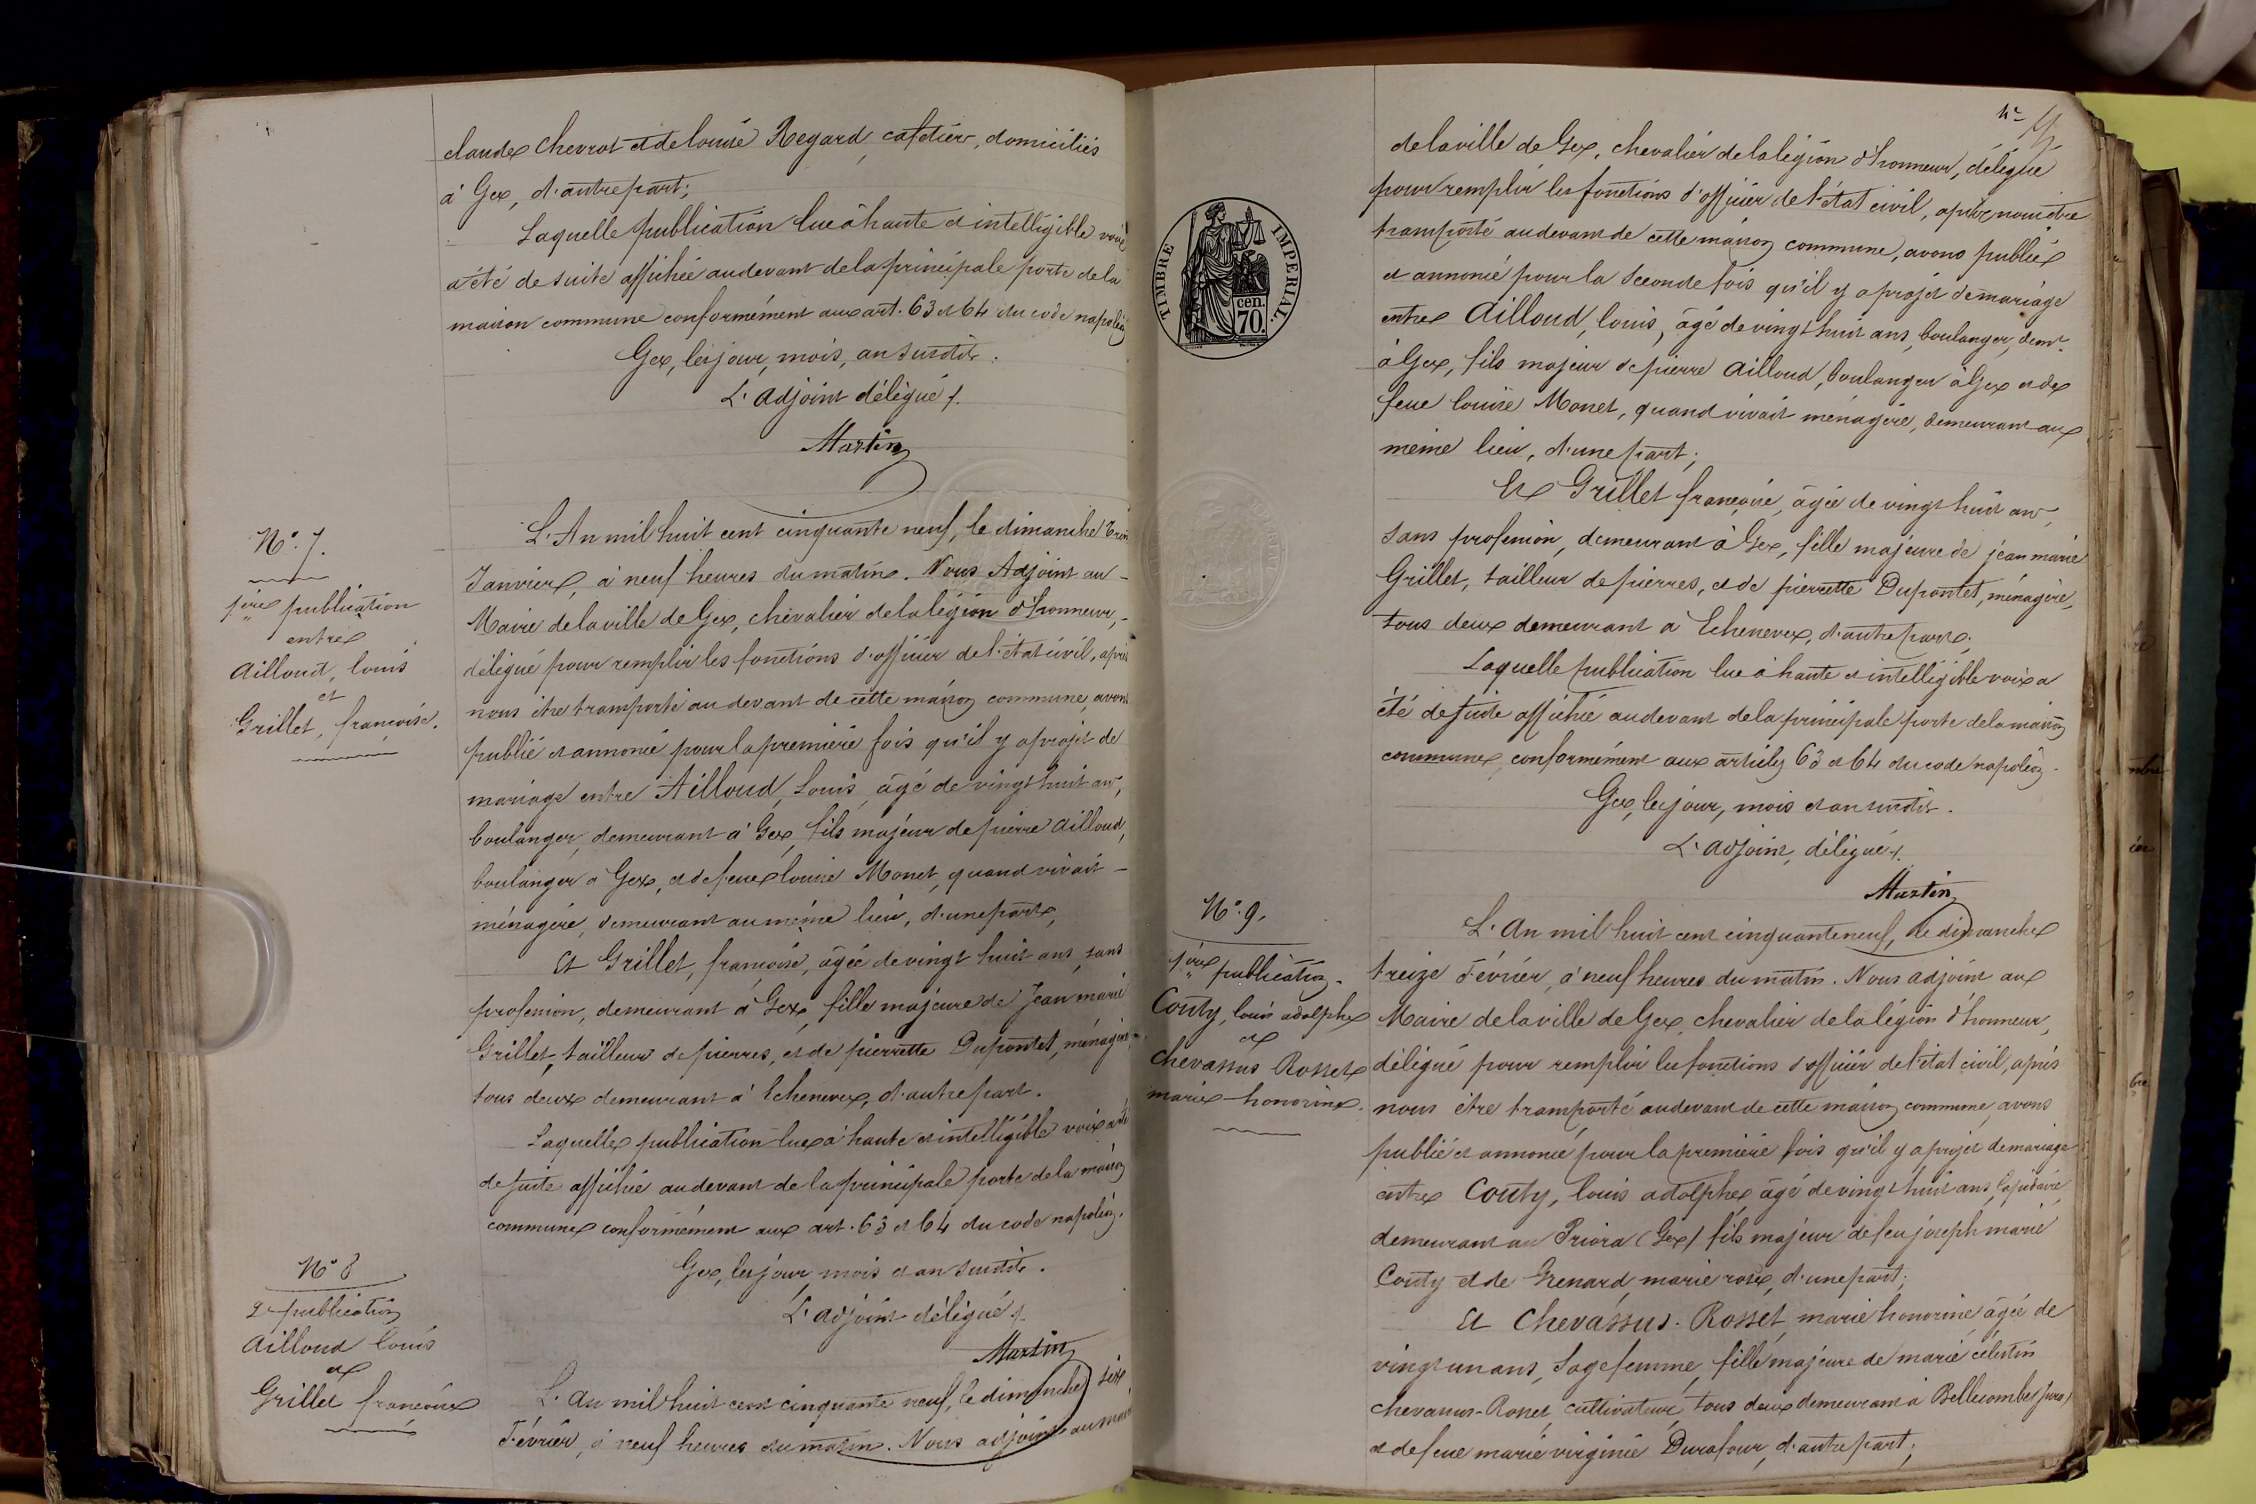 claude Chevrot et de louise Regard, cafetier, domiciliés
à Gex, d'autre part;
Laquelle publication lue à haute et intelligible voix
a été de suite affichée au devant de la principale porte de la
maison commune conformément aux art. 63 et 64 du code napoléon
Gex, les jour, mois, an susdits.
L'adjoint délégué
Martin
N° 7.
1ère publication
entre
Ailloud, louis
et
Grillet, françoise.
L'An mil huit cent cinquante neuf, le dimanche
Janvier, à neuf heures du matin. Nous Adjoint au
Maire de la ville de Gex, chevalier de la légion d'honneur,
délégué pour remplir les fonctions d'officier de l'état civil, après
nous être transporté au devant de cette maison commune, avons
publié et annoncé pour la première fois qu'il y a projet de
mariage entre Ailloud, Louis, âgé de vingt huit ans,
boulanger, demeurant à Gex, fils majeur de pierre Ailloud,
boulanger à Gex, et de feue louise Monet, quand vivait
ménagère, demeurant au même lieu, d'une part,
Et Grillet, françoise, âgée de vingt huit ans, sans
profession, demeurant à Gex, fille majeure de Jean marie
Grillet, tailleur de pierres, et de pierrette Dupontet, ménagère,
tous deux demeurant à Echenevex, d'autre part.
Laquelle publication lue à haute et intelligible voix a été
de suite affichée au devant de la principale porte de la maison
commune conformément aux art. 63 et 64 du code napoléon.
Gex, les jour, mois et an susdits.
L'adjoint délégué
Martin
N° 8
2e publication
Ailloud louis
et
Grillet françoise
L'An mil huit cent cinquante neuf, le dimanche six
Février, à neuf heures du matin. Nous adjoint au maire
N°
TIMBRE IMPERIAL.
cen.
70.
de la ville de Gex, chevalier de la légion d'honneur, délégué
pour remplir les fonctions d'officier de l'état civil, après nous être
transporté au devant de cette maison commune, avons publié
et annoncé pour la seconde fois qu'il y a projet de mariage
entre Ailloud, louis, âgé de vingt huit ans, boulanger, demt.
à Gex, fils majeur de pierre Ailloud, boulanger à Gex et de
feue louise Monet, quand vivait ménagère, demeurant au
même lieu, d'une part;
Et Grillet françoise, âgée de vingt huit ans,
sans profession, demeurant à Gex, fille majeure de jean marie
Grillet, tailleur de pierres, et de pierrette Dupontet, ménagère,
tous deux demeurant à Echenevex, d'autre part.
Laquelle publication lue à haute et intelligible voix a
été de suite affichée au devant de la principale porte de la maison
commune, conformément aux articles 63 et 64 du code napoléon.
Gex, les jour, mois et an susdits.
L'adjoint, délégué
Martin
N° 9.
1ère publication.
Couty, louis adolphe
et
Chevassus Rosset
marie honorine.
L'An mil huit cent cinquante neuf, le dimanche
treize Février, à neuf heures du matin. Nous adjoint au
Maire de la ville de Gex, chevalier de la légion d'honneur,
délégué pour remplir les fonctions d'officier de l'état civil, après
nous être transporté au devant de cette maison commune, avons
publié et annoncé pour la première fois qu'il y a projet de mariage
entre Couty, louis adolphe, âgé de vingt huit ans, lapidaire,
demeurant au (Gex) fils majeur de feu joseph marie
Couty et de Grenard, marie rose, d'une part;
Et Chevassus-Rosset, marie honorine âgée de
vingt un ans, Sage femme, fille majeure de marie célestin
Chevassus-Rosset, cultivateur, tous deux demeurant à Bellecombe (jura)
et de feue marie virginie Durafour, d'autre part;